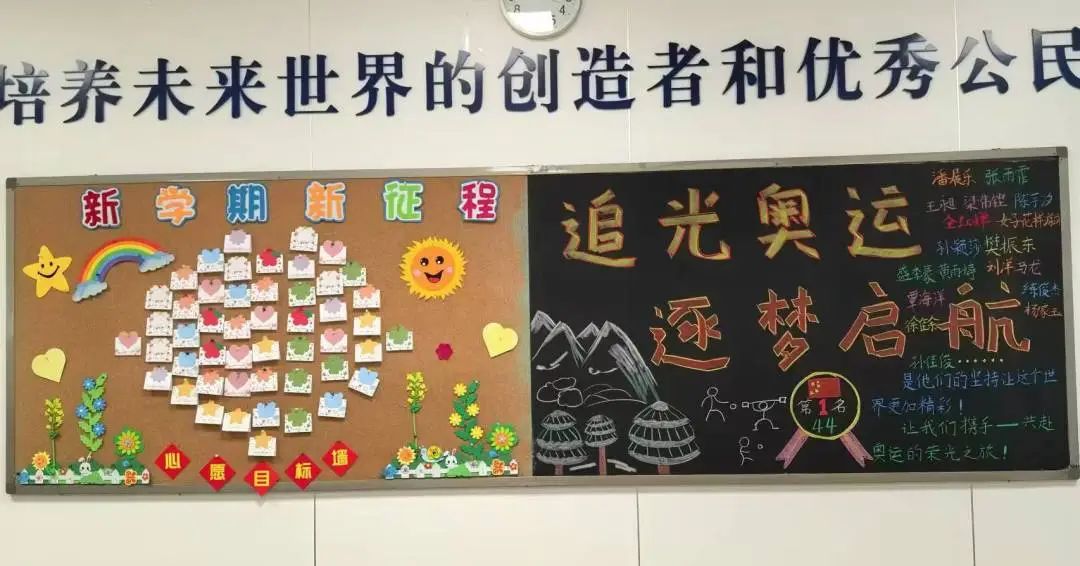 培养未来世界的创造者和优秀公民
新学期新征程
心愿目标墙
追光奥运
逐梦启航
潘展乐 张雨霏
王昶 梁伟铿 陈芋汐
全红婵 女子花样游泳
孙颖莎 樊振东
盛李豪 黄雨婷 刘洋 马龙
覃海洋
徐俊杰
杨家玉
孙佳俊……
是他们的坚持让这个世
界更加精彩！
让我们携手一共赴
奥运的荣光之旅！
第1名
44